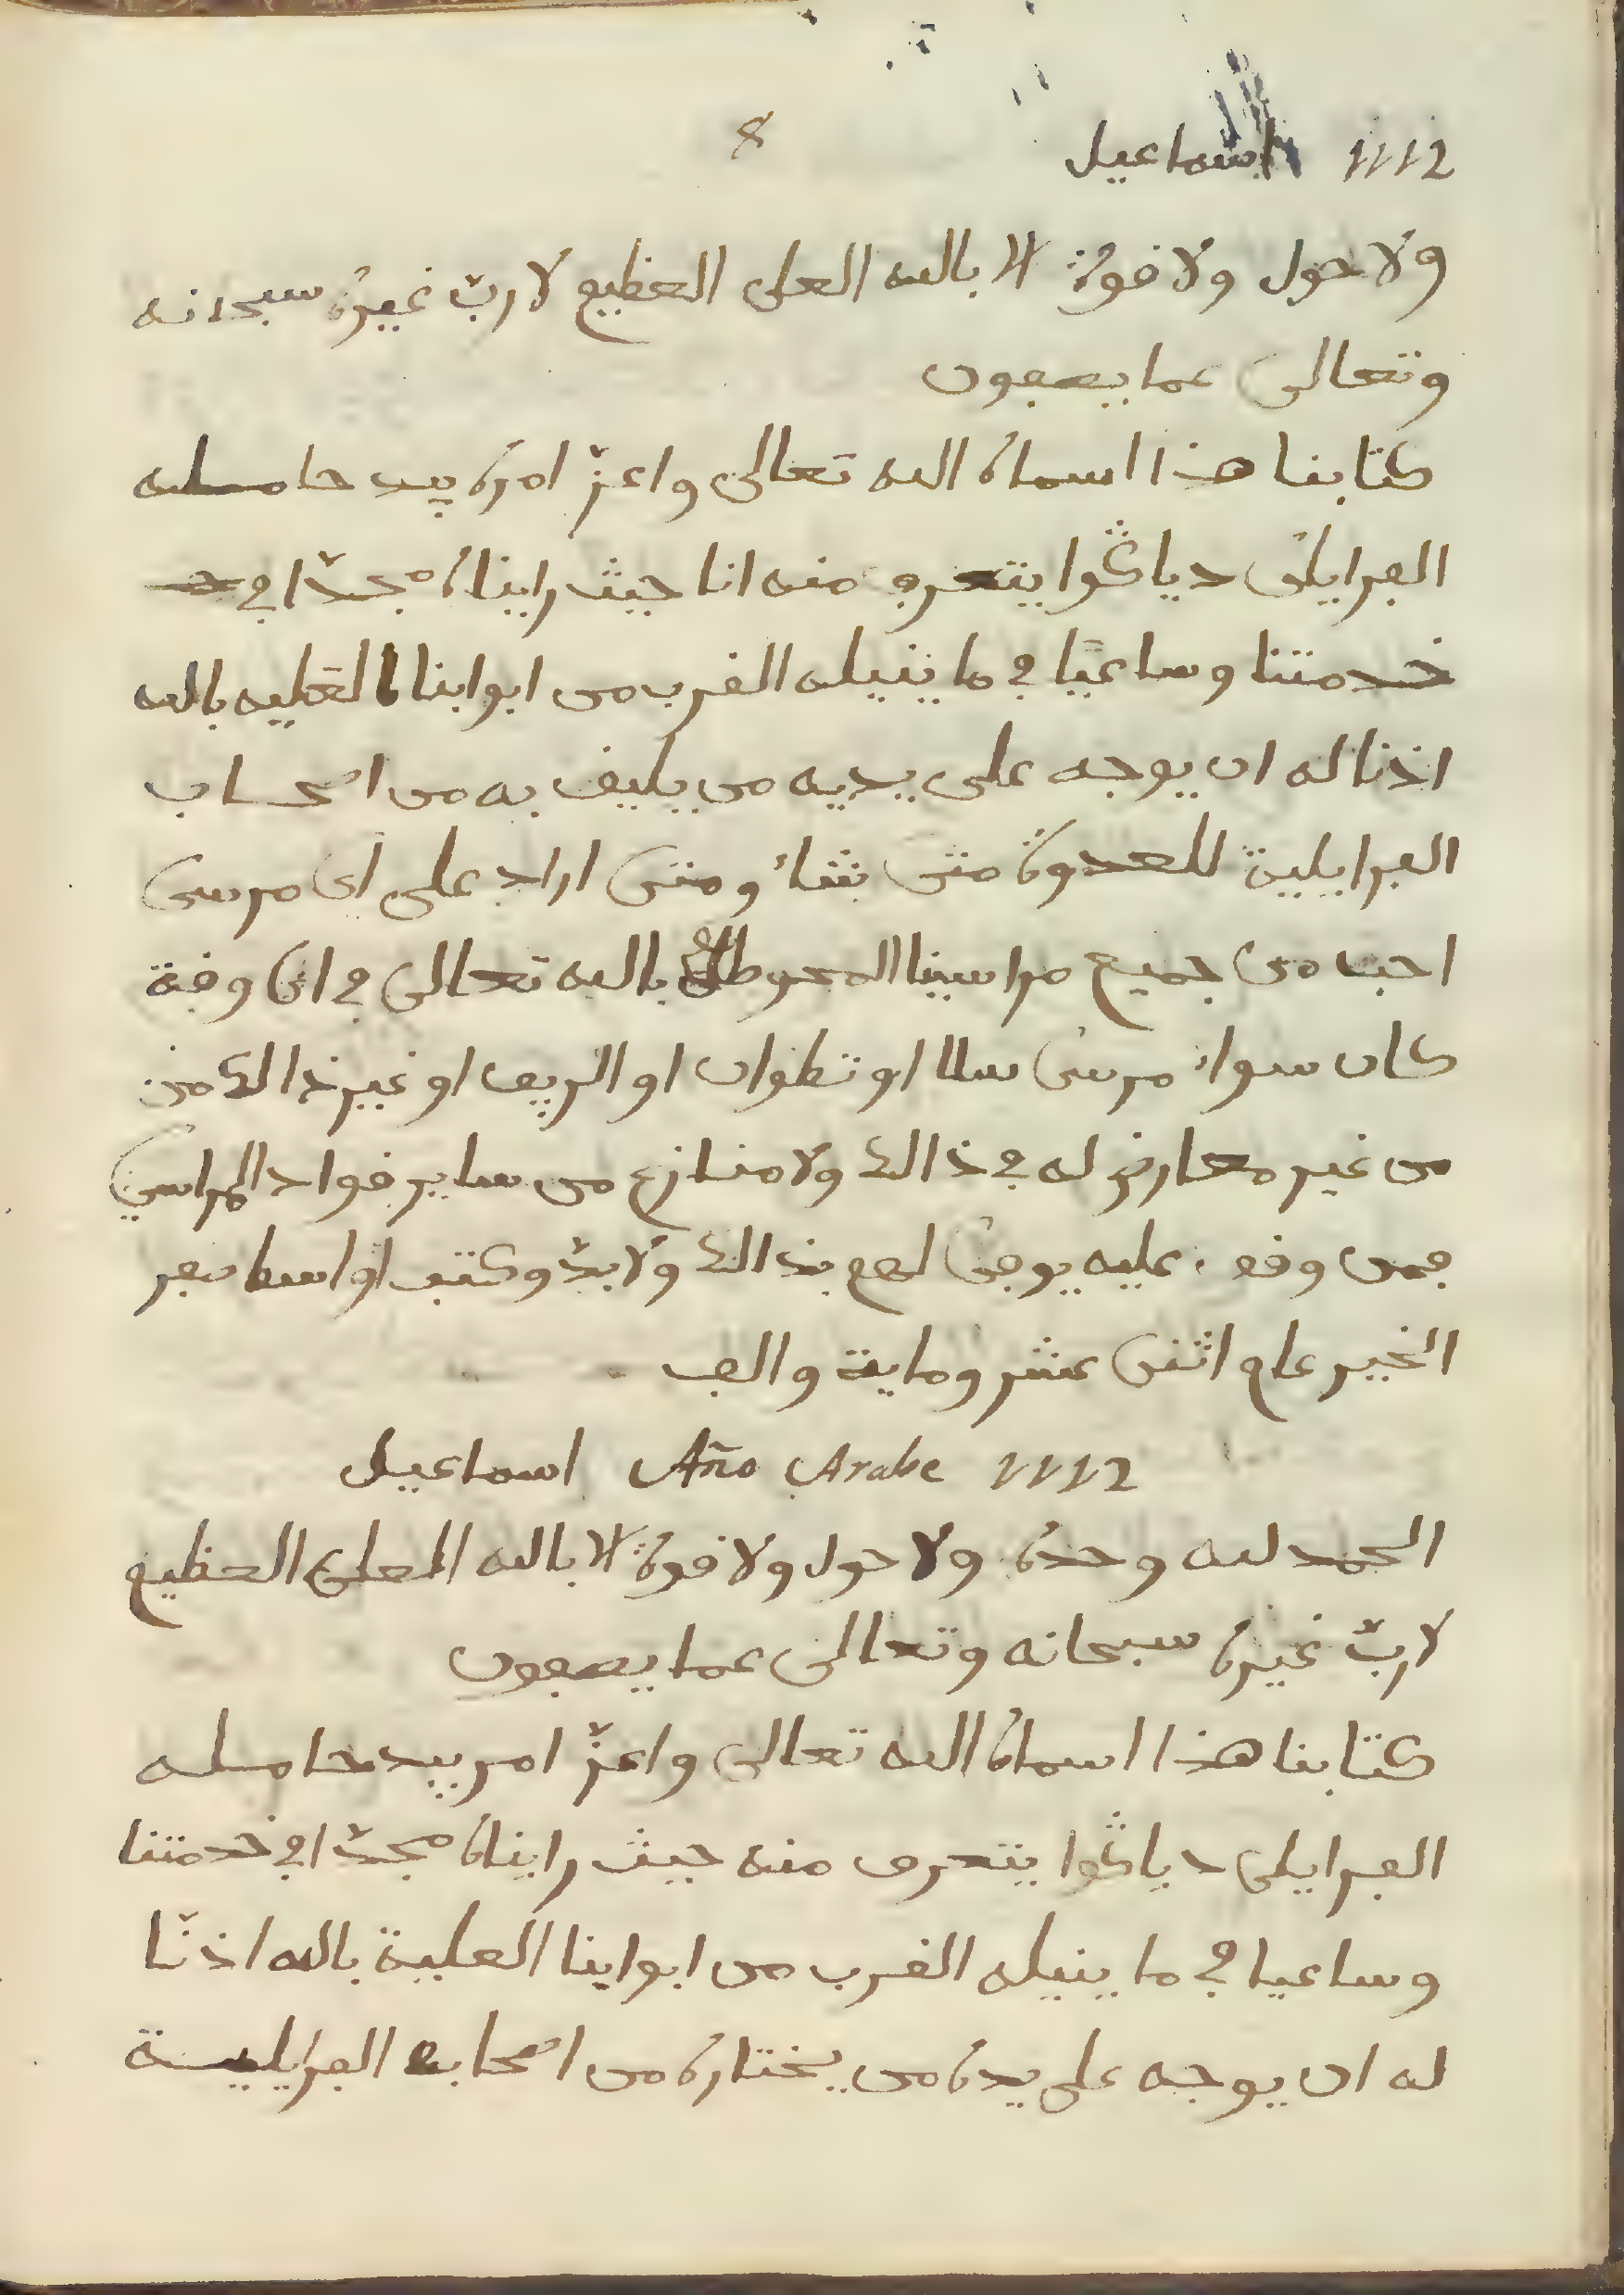 8
1112 اسماعيل
ولا حول ولا قوة الا بالله العلى العظيم لا ربّ غيره سبحانه
وتعالى عما يصفون
كتابنا هذا اسماه الله تعالى واعزّ امره بيد حامله
الفرايلى دياڭوا يتعرف منه انا حيث رايناه مجدّا في
خدمتنا وساعيًا في ما ينيله القرب من ابوابنا العليه بالله
اذنا له ان يوجه على يديه من يليق به من اصحاب
الفرايلية للعدوة متى شاء ومتى اراد على اى مرسى
احب من جميع مراسينا المحوطة بالله تعالى في اى وقة
كان سواء مرسى سلا او تطوان او الريف او غير ذالك من
من غير معارض له في ذالك ولا منازع من ساير قواد المراسي
فمن وقف عليه يوفى لهم بذالك ولا بدّ وكتب اواسط صفر
الخير عام اثنى عشر وماية والف
اسماعيل Año Arabe 1112
الحمد لله وحده ولا حول ولا قوة الا بالله العلى العظيم
لا ربّ غيره سبحانه وتعالى عما يصفون
كتابنا هذا اسماه الله تعالى واعزّ امر بيد حامله
الفرايلى دياڭوا يتعرف منه حيث رايناه مجدّا في خدمتنا
وساعيا في ما ينيله القرب من ابوابنا العلية بالله اذنّا
له ان يوجه على يده من يختاره من اصحابه الفرايلية